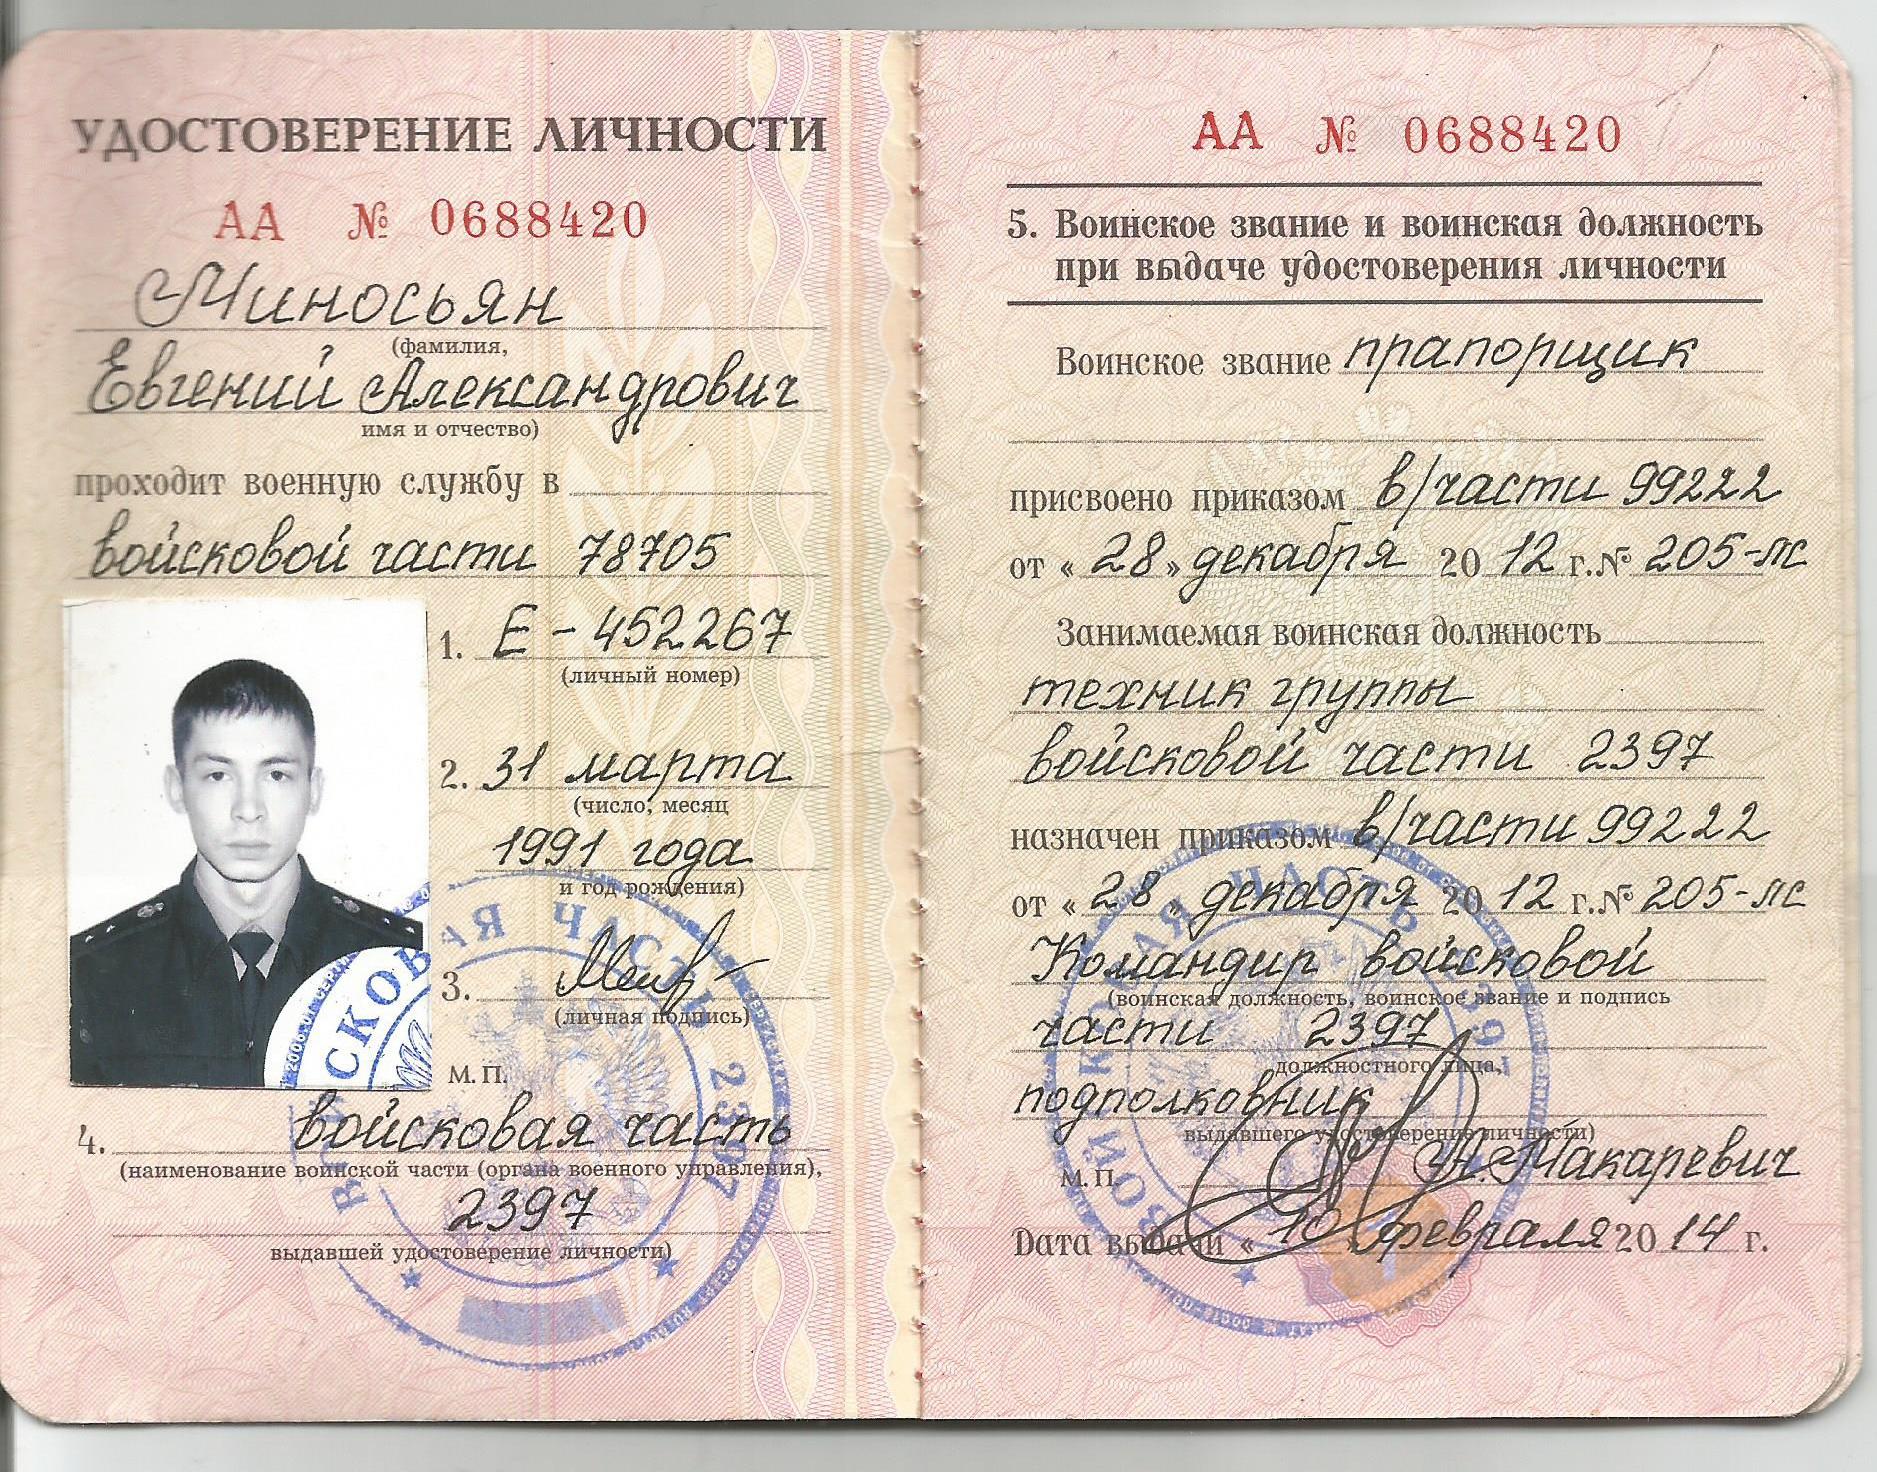 УДОСТОВЕРЕНИЕ ЛИЧНОСТИ
АА № 0688420
Миносьян
(фамилия,
Евгений Александрович
имя и отчество)
проходит военную службу в
войсковой части 78705
1. Е - 452267
(личный номер)
2. 31 марта
(число, месяц
1991 года
и год рождения)
3.
(личная подпись)
М. П.
4. войсковая часть
(наименование воинской части (органа военного управления),
2397
выдавшей удостоверение личности)
ВОЙСКОВАЯ ЧАСТЬ 2397
АА № 0688420
5. Воинское звание и воинская должность
при выдаче удостоверения личности
Воинское звание прапорщик
присвоено приказом в/части 99222
от « 28 » декабря 20 12 г. № 205-лс
Занимаемая воинская должность
техник группы
войсковой части 2397
назначен приказом в/части 99222
от « 28 » декабря 20 12 г. № 205-лс
Командир войсковой
(воинская должность, воинское звание и подпись
части 2397
должностного лица,
подполковник
выдавшего удостоверение личности)
М. П. Макаревич
Дата выдачи « 10 » февраля 20 14 г.
ВОЙСКОВАЯ ЧАСТЬ 2397